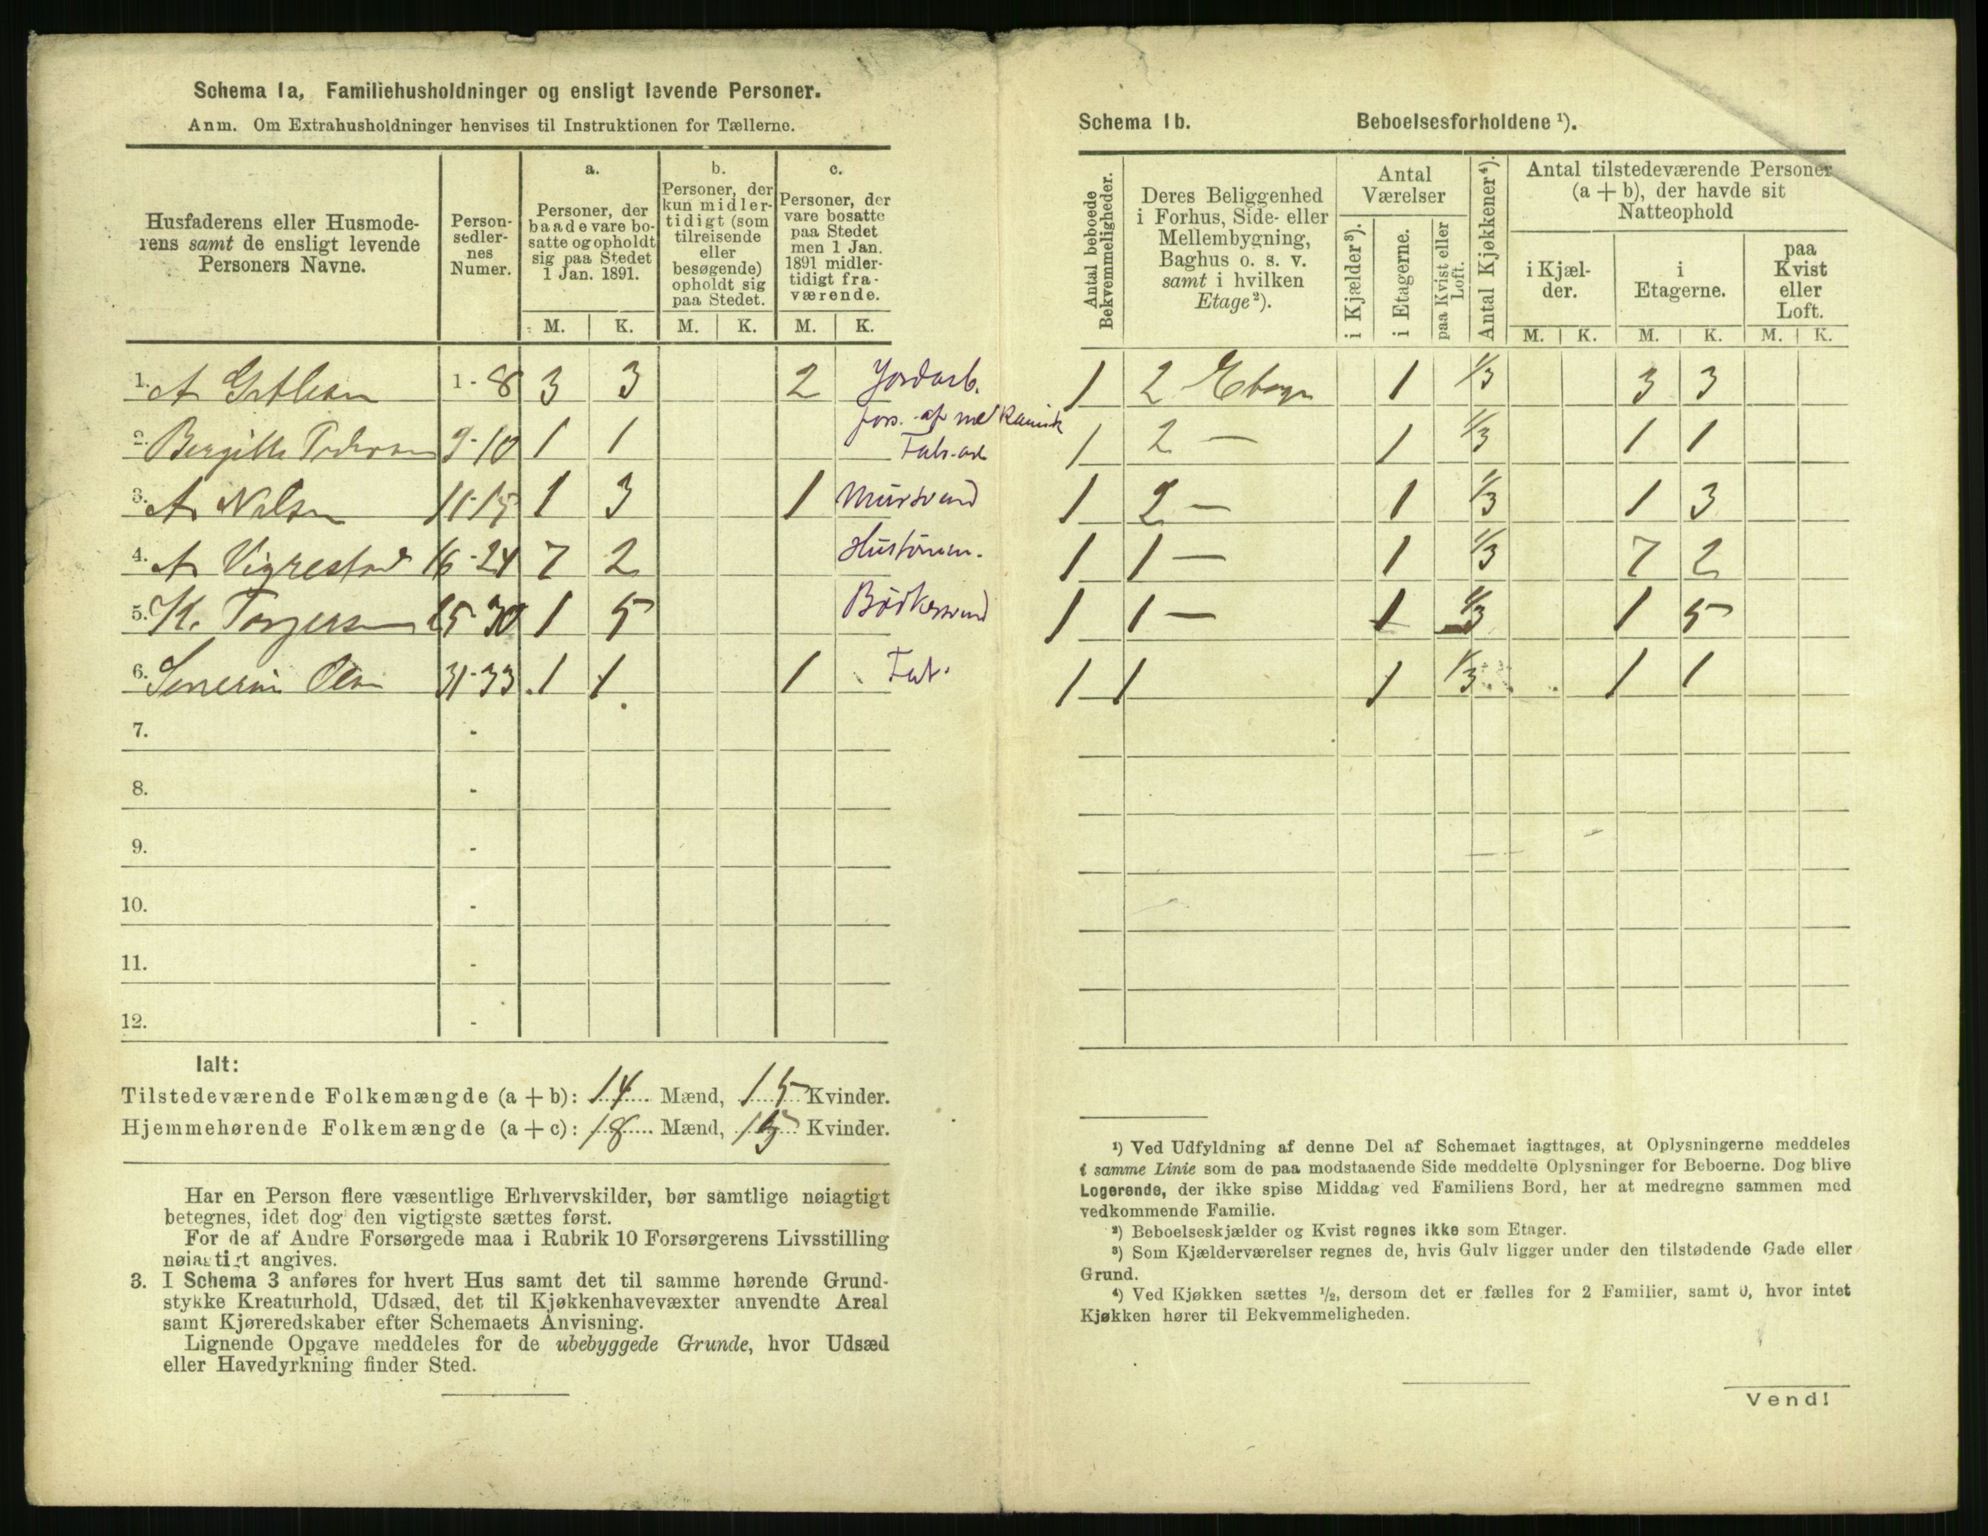 Schema 1a, Familiehusholdninger og ensligt levende Personer.
Anm. Om Extrahusholdninger henvises til Instruktionen for Tællerne.
Husfaderens eller Husmoderens samt de ensligt levende Personers Navne.
Personsedlernes Numer.
a.
Personer, der baade vare bosatte og opholdt sig paa Stedet 1 Jan. 1891.
b.
Personer, der kun midlertidigt (som tilreisende eller besøgende) opholdt sig paa Stedet.
c.
Personer, der vare bosatte paa Stedet men 1 Jan. 1891 midlertidigt fraværende.
M. K. M. K. M. K.
1. A 1 - 8 3 3 2 Jordarb.
fors. af mekanisk
2. Bergitte 9-10 1 1 Fabr.arb
3. A. Nilsen 11-15 1 3 1 Mursvend
4. A Vigrestad 16-24 7 2 Hustømm.
5. K. Torgersen 25-30 1 5 Bødkersvend
6. Severin Olsen 31-33 1 1 1 Fat.
7. -
8. -
9. -
10. -
11. -
12. -
Ialt:
Tilstedeværende Folkemængde (a + b): 14 Mænd, 15 Kvinder.
Hjemmehørende Folkemængde (a + c): 18 Mænd, 15 Kvinder.
Har en Person flere væsentlige Erhvervskilder, bør samtlige nøiagtigt
betegnes, idet dog den vigtigste sættes først.
For de af Andre Forsørgede maa i Rubrik 10 Forsørgerens Livsstilling
nøiagtigt angives.
3. I Schema 3 anføres for hvert Hus samt det til samme hørende Grund-
stykke Kreaturhold, Udsæd, det til Kjøkkenhavevæxter anvendte Areal
samt Kjøreredskaber efter Schemaets Anvisning.
Lignende Opgave meddeles for de ubebyggede Grunde, hvor Udsæd
eller Havedyrkning finder Sted.
Schema 1b. Beboelsesforholdene ¹).
Antal beboede Bekvemmeligheder.
Deres Beliggenhed i Forhus, Side- eller Mellembygning, Baghus o. s. v. samt i hvilken Etage²).
Antal Værelser
i Kjælder³).
i Etagerne.
paa Kvist eller Loft.
Antal Kjøkkener⁴).
Antal tilstedeværende Personer (a + b), der havde sit Natteophold
i Kjælder.
i Etagerne.
paa Kvist eller Loft.
M. K. M. K. M. K.
1 2 Etage 1 1/3 3 3
1 2 — 1 1/3 1 1
1 2 — 1 1/3 1 3
1 1 — 1 1/3 7 2
1 1 — 1 1/3 1 5
1 1 1 1/3 1 1
¹) Ved Udfyldning af denne Del af Schemaet iagttages, at Oplysningerne meddeles
i samme Linie som de paa modstaaende Side meddelte Oplysninger for Beboerne. Dog blive
Logerende, der ikke spise Middag ved Familiens Bord, her at medregne sammen med
vedkommende Familie.
²) Beboelseskjælder og Kvist regnes ikke som Etager.
³) Som Kjælderværelser regnes de, hvis Gulv ligger under den tilstødende Gade eller
Grund.
⁴) Ved Kjøkken sættes ½, dersom det er fælles for 2 Familier, samt 0, hvor intet
Kjøkken hører til Bekvemmeligheden.
Vend!